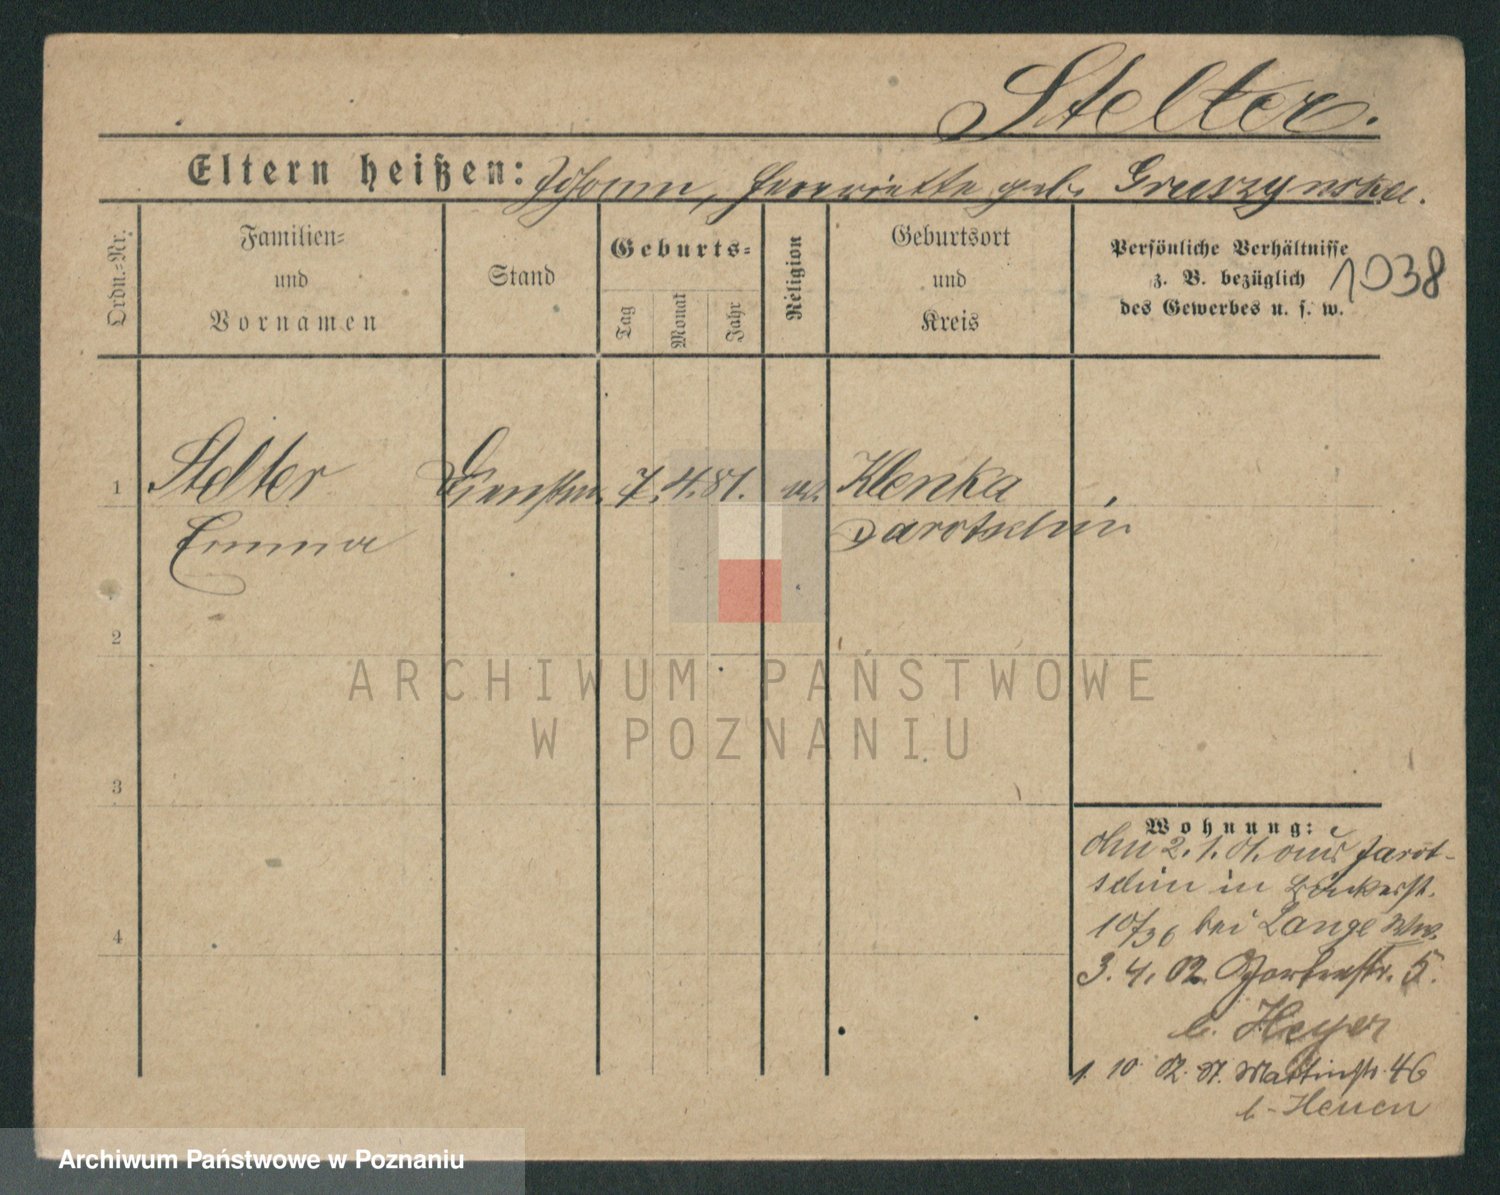 Stelter.
Eltern heißen: Johann, Henriette geb. Gruszynska.
Ordn.-Nr.
Familien-
und
Vornamen
Stand
Geburts-
Tag
Monat
Jahr
Religion
Geburtsort
und
Kreis
Persönliche Verhältnisse
z. B. bezüglich
des Gewerbes u. s. w.
1038
1 Stelter 7. 4. 81. ev. Klenka
Emma Jarotschin
2
3
4
Wohnung:
2. 1. 01. aus Jarot-
schin in Bäckerst.
10/36 bei Lange Ww.
3. 4. 02. Gartenstr. 5.
b. Heyer
1. 10. 02. St. Martinstr. 46
b. Heuen
ARCHIWUM PAŃSTWOWE
W POZNANIU
Archiwum Państwowe w Poznaniu